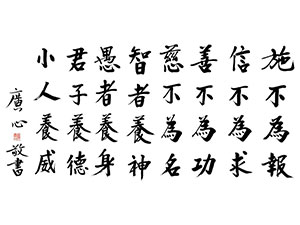 施不為報
信不為求
善不為功
慈不為名
智者養神
愚者養身
君子養德
小人養威
廣心
敬書